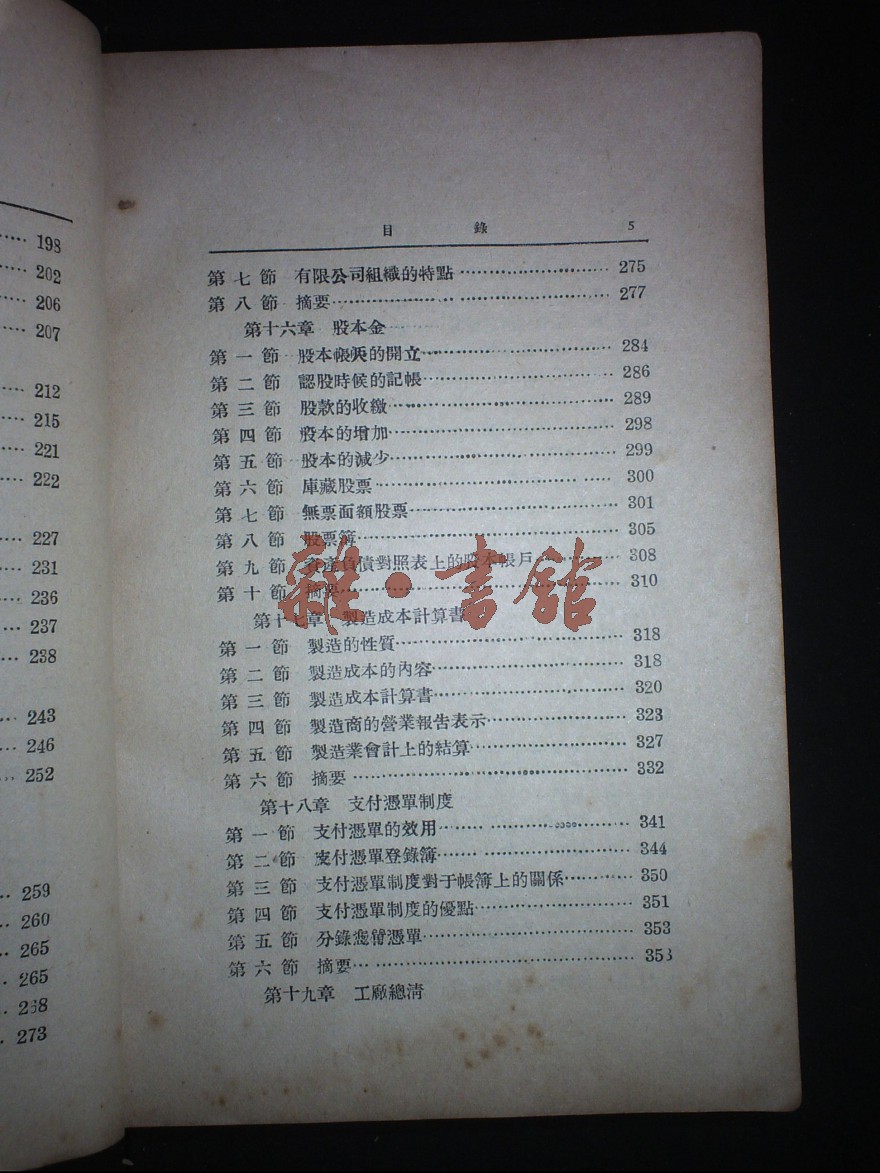 198
202
206
207
212
215
221
222
227
231
236
237
238
243
246
252
259
260
265
265
268
273
目 錄 5
第七節 有限公司組織的特點 275
第八節 摘要 277
第十六章 股本金
第一節 股本帳戾的開立 284
第二節 認股時候的記帳 286
第三節 股款的收繳 289
第四節 股本的增加 298
第五節 股本的減少 299
第六節 庫藏股票 300
第七節 無票面額股票 301
第八節 股票簿 305
第九節 資產負債對照表上的股本帳戶 308
第十節 摘要 310
第十七章 製造成本計算書
第一節 製造的性質 318
第二節 製造成本的內容 318
第三節 製造成本計算書 320
第四節 製造商的營業報告表示 323
第五節 製造業會計上的結算 327
第六節 摘要 332
第十八章 支付憑單制度
第一節 支付憑單的效用 341
第二節 支付憑單登錄簿 344
第三節 支付憑單制度對于帳簿上的關係 350
第四節 支付憑單制度的優點 351
第五節 分錄憑單 353
第六節 摘要 353
第十九章 工廠總淸
雜·書館